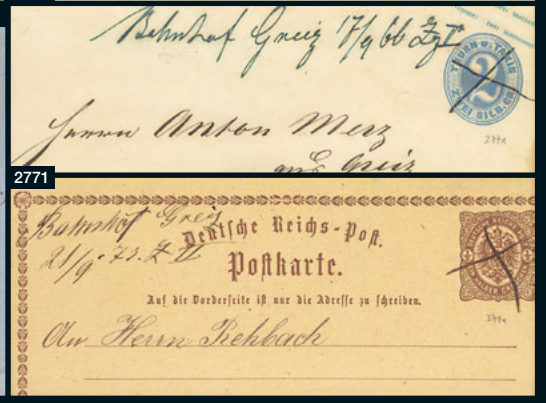 Bahnhof Greiz 17/9 66 Zg I
THURN u. TAXIS
2
ZWEI SILB. GR.
277a
Herrn Anton Merz
aus Greiz
2771
Bahnhof Greiz
21/9 73. Z II
Deutsche Reichs-Post.
Postkarte.
Auf die Vorderseite ist nur die Adresse zu schreiben.
An Herrn Rehbach